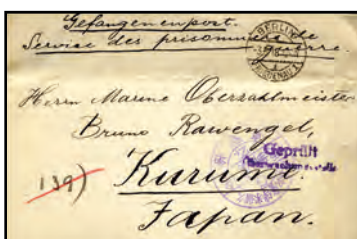 Gefangenenpost.
Service des prisonniers de guerre.
BERLIN
Herrn Marine Oberzahlmeister
Bruno Rawengel,
Geprüft
139)
Kurume.
Japan.